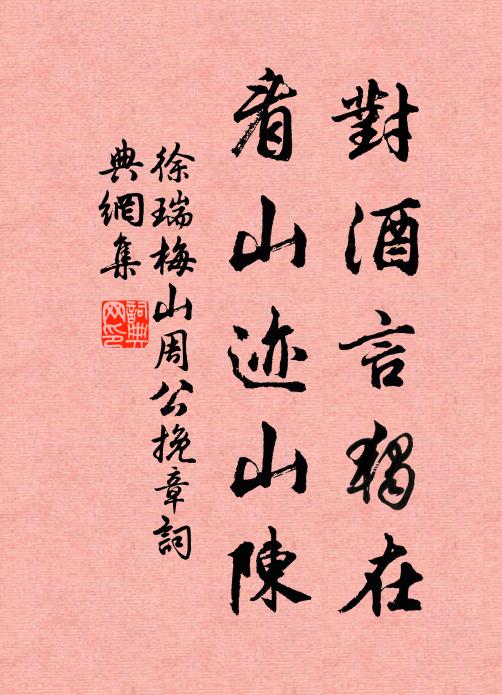 對酒言獨在
看山迹山陳
徐瑞梅山周公挽章詞
典網集
詞典
网印